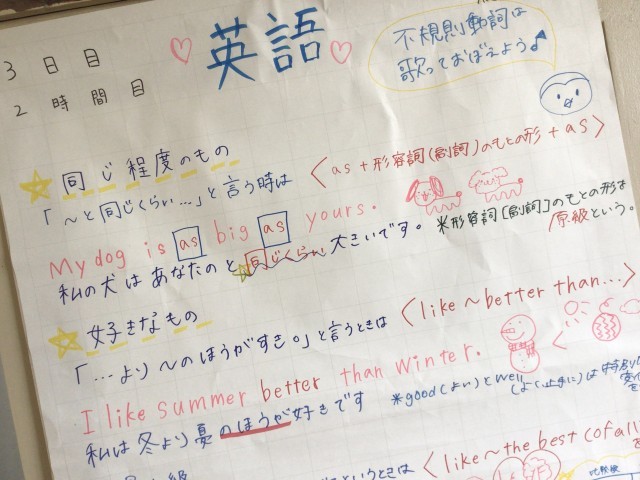 英語
3日目
2時間目
不規則動詞は
歌っておぼえよう♪
同じ程度のもの
<as+形容詞(副詞)のもとの形+as>
「~と同じくらい…」と言う時は
My dog is as big as yours.
※形容詞[副詞]のもとの形は
原級という。
私の犬はあなたのと同じくらい大きいです。
好きなもの
<like~better than…>
「…より~のほうがすき。」と言うときは
I like summer better than winter.
*good(よい)とwell(よく、上手に)は
私は冬より夏のほうが好きです
というときは
<like~the best (of all
比較級